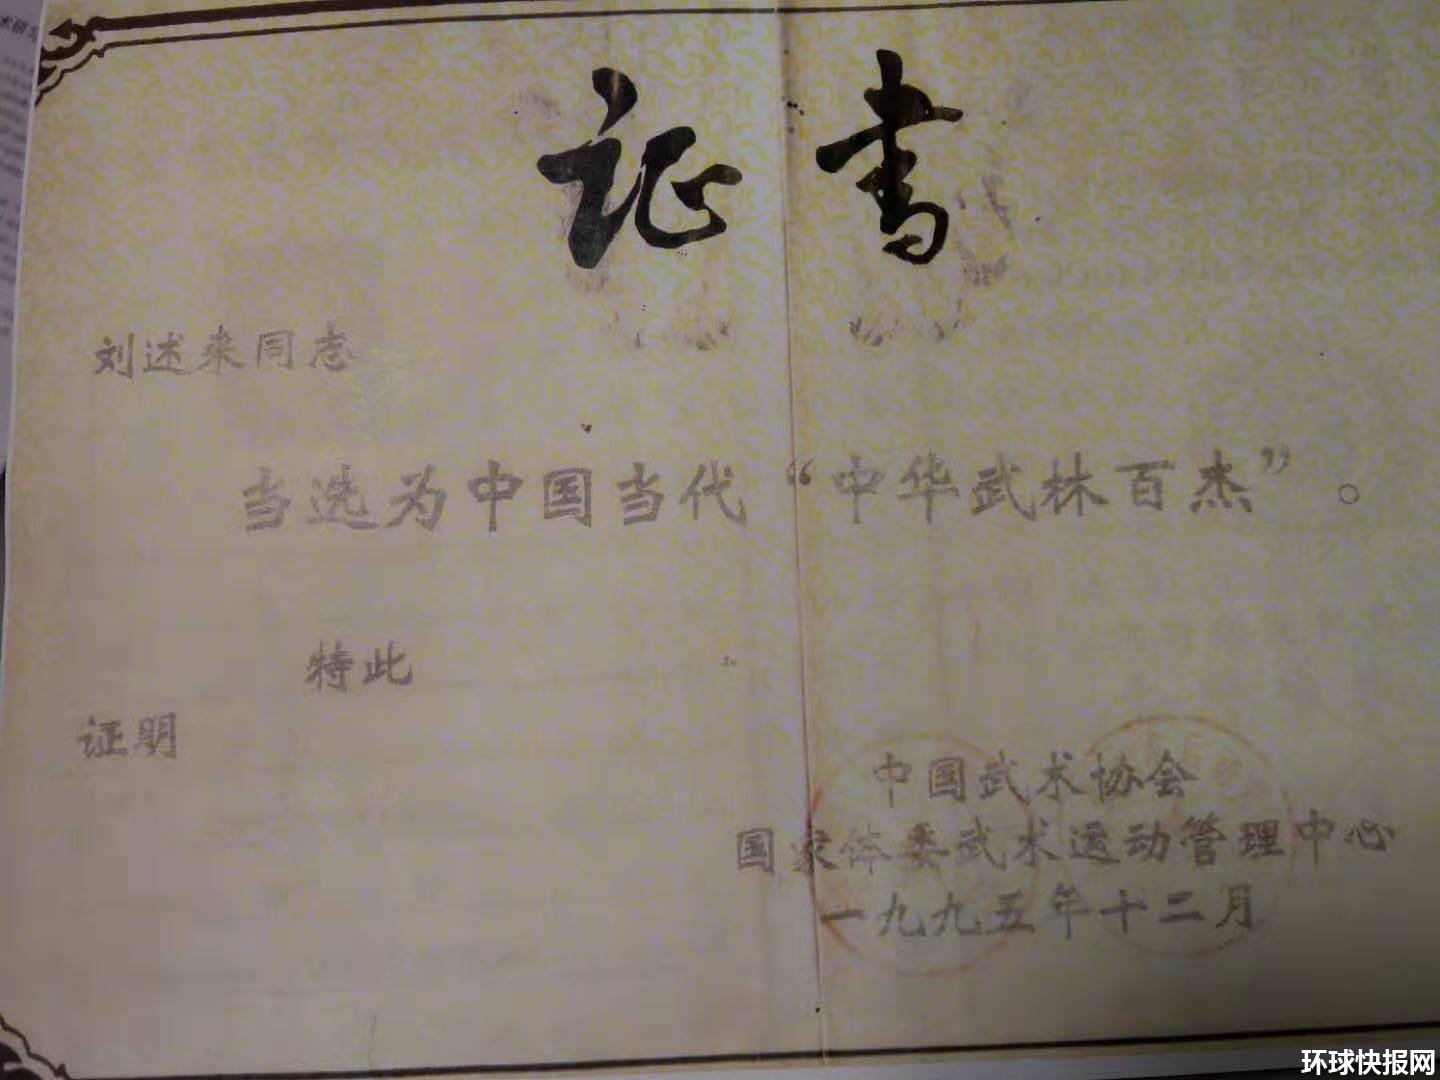 证书
刘述来同志
当选为中国当代“中华武林百杰”。
特此
证明
中国武术协会
国家体委武术运动管理中心
一九九五年十二月
环球快报网